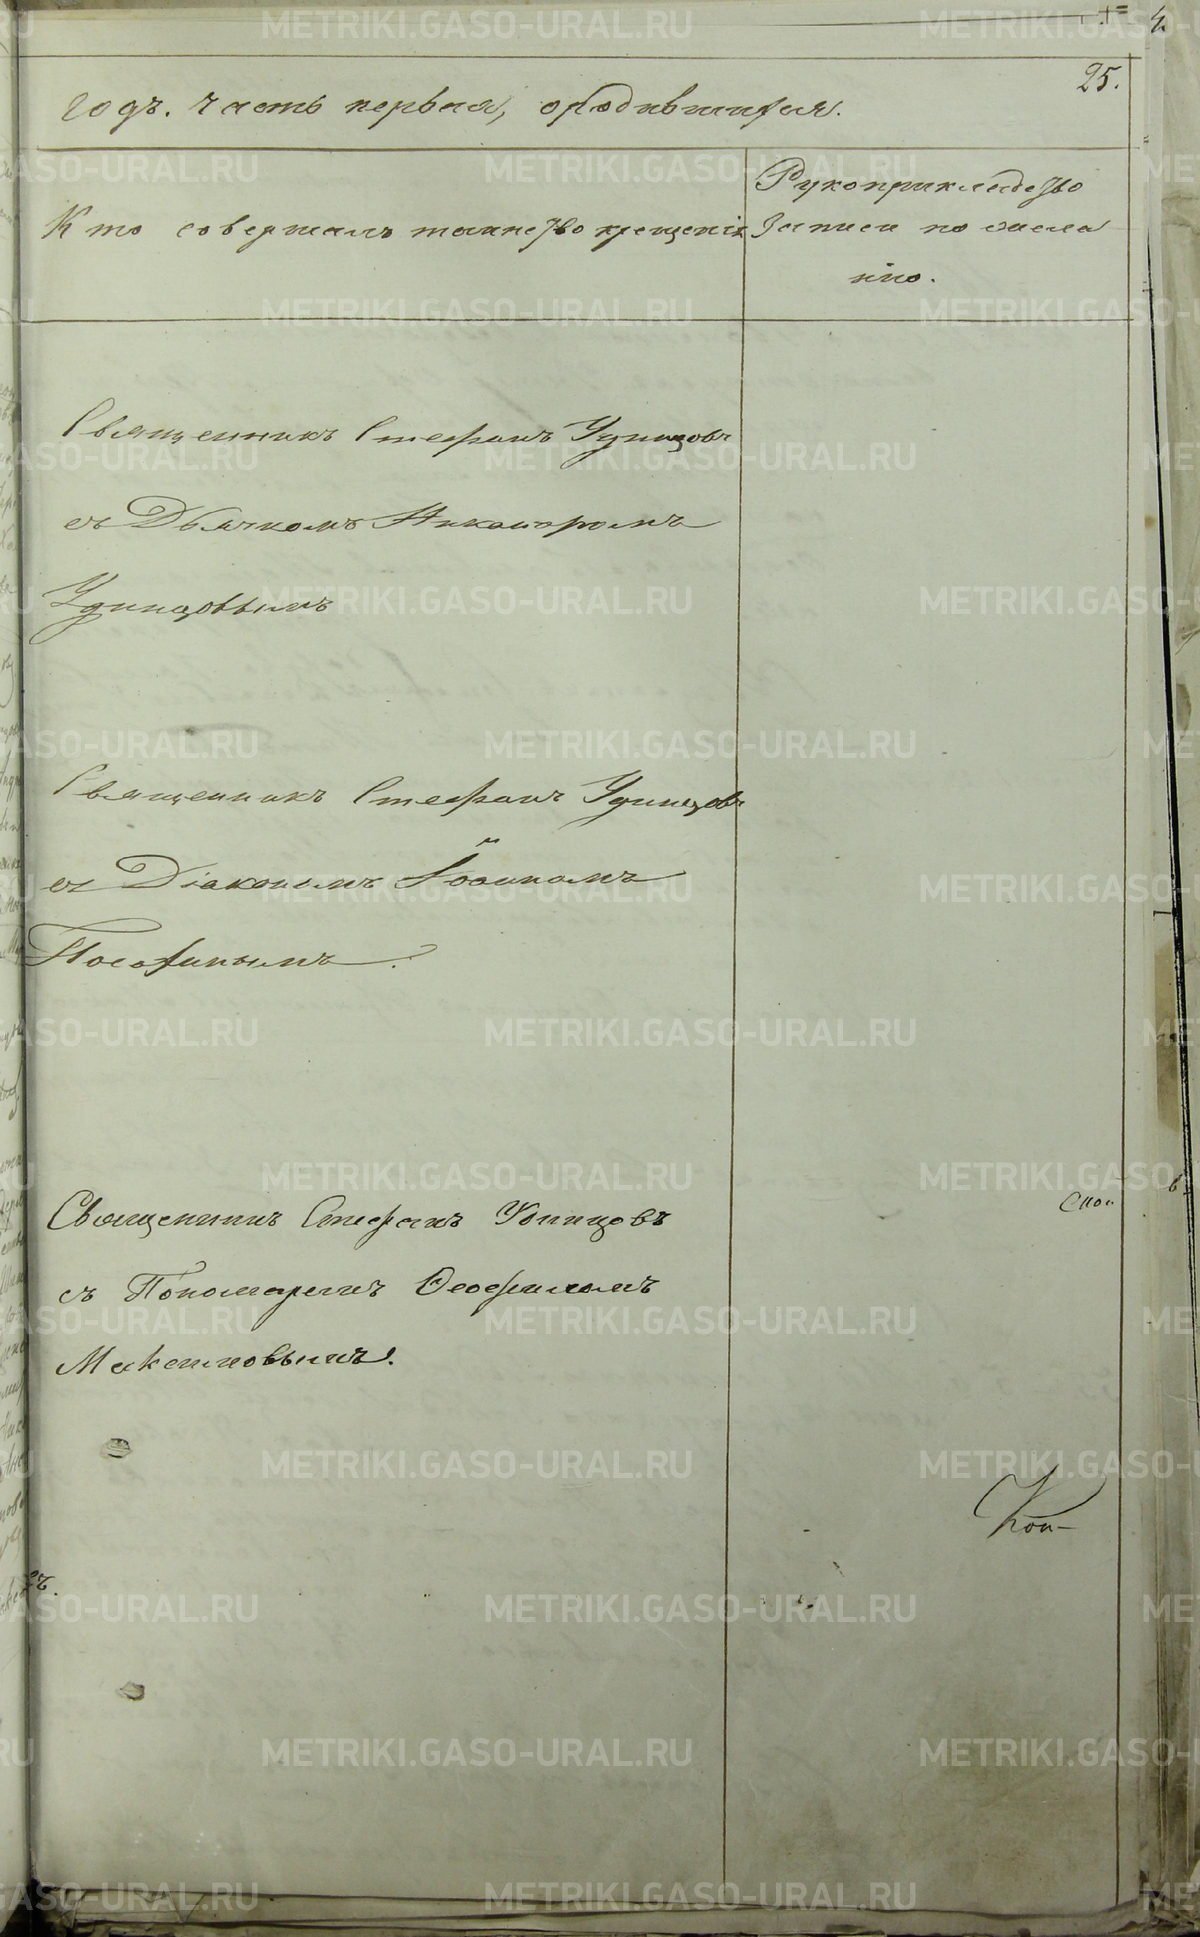 25.
годъ. Часть первая, о родившихся.
Кто совершалъ таинство крещенія
Рукоприкладство
записи по жела
нію.
Священникъ Стефанъ Удинцовъ
съ Дьячкомъ Никаноромъ
Удинцовымъ
Священникъ Стефанъ Удинцовъ
съ Діакономъ Іоанномъ
Священникъ Стефанъ Удинцовъ
съ Пономаремъ Ѳеофиломъ
Максимовымъ.
METRIKI.GASO-URAL.RU